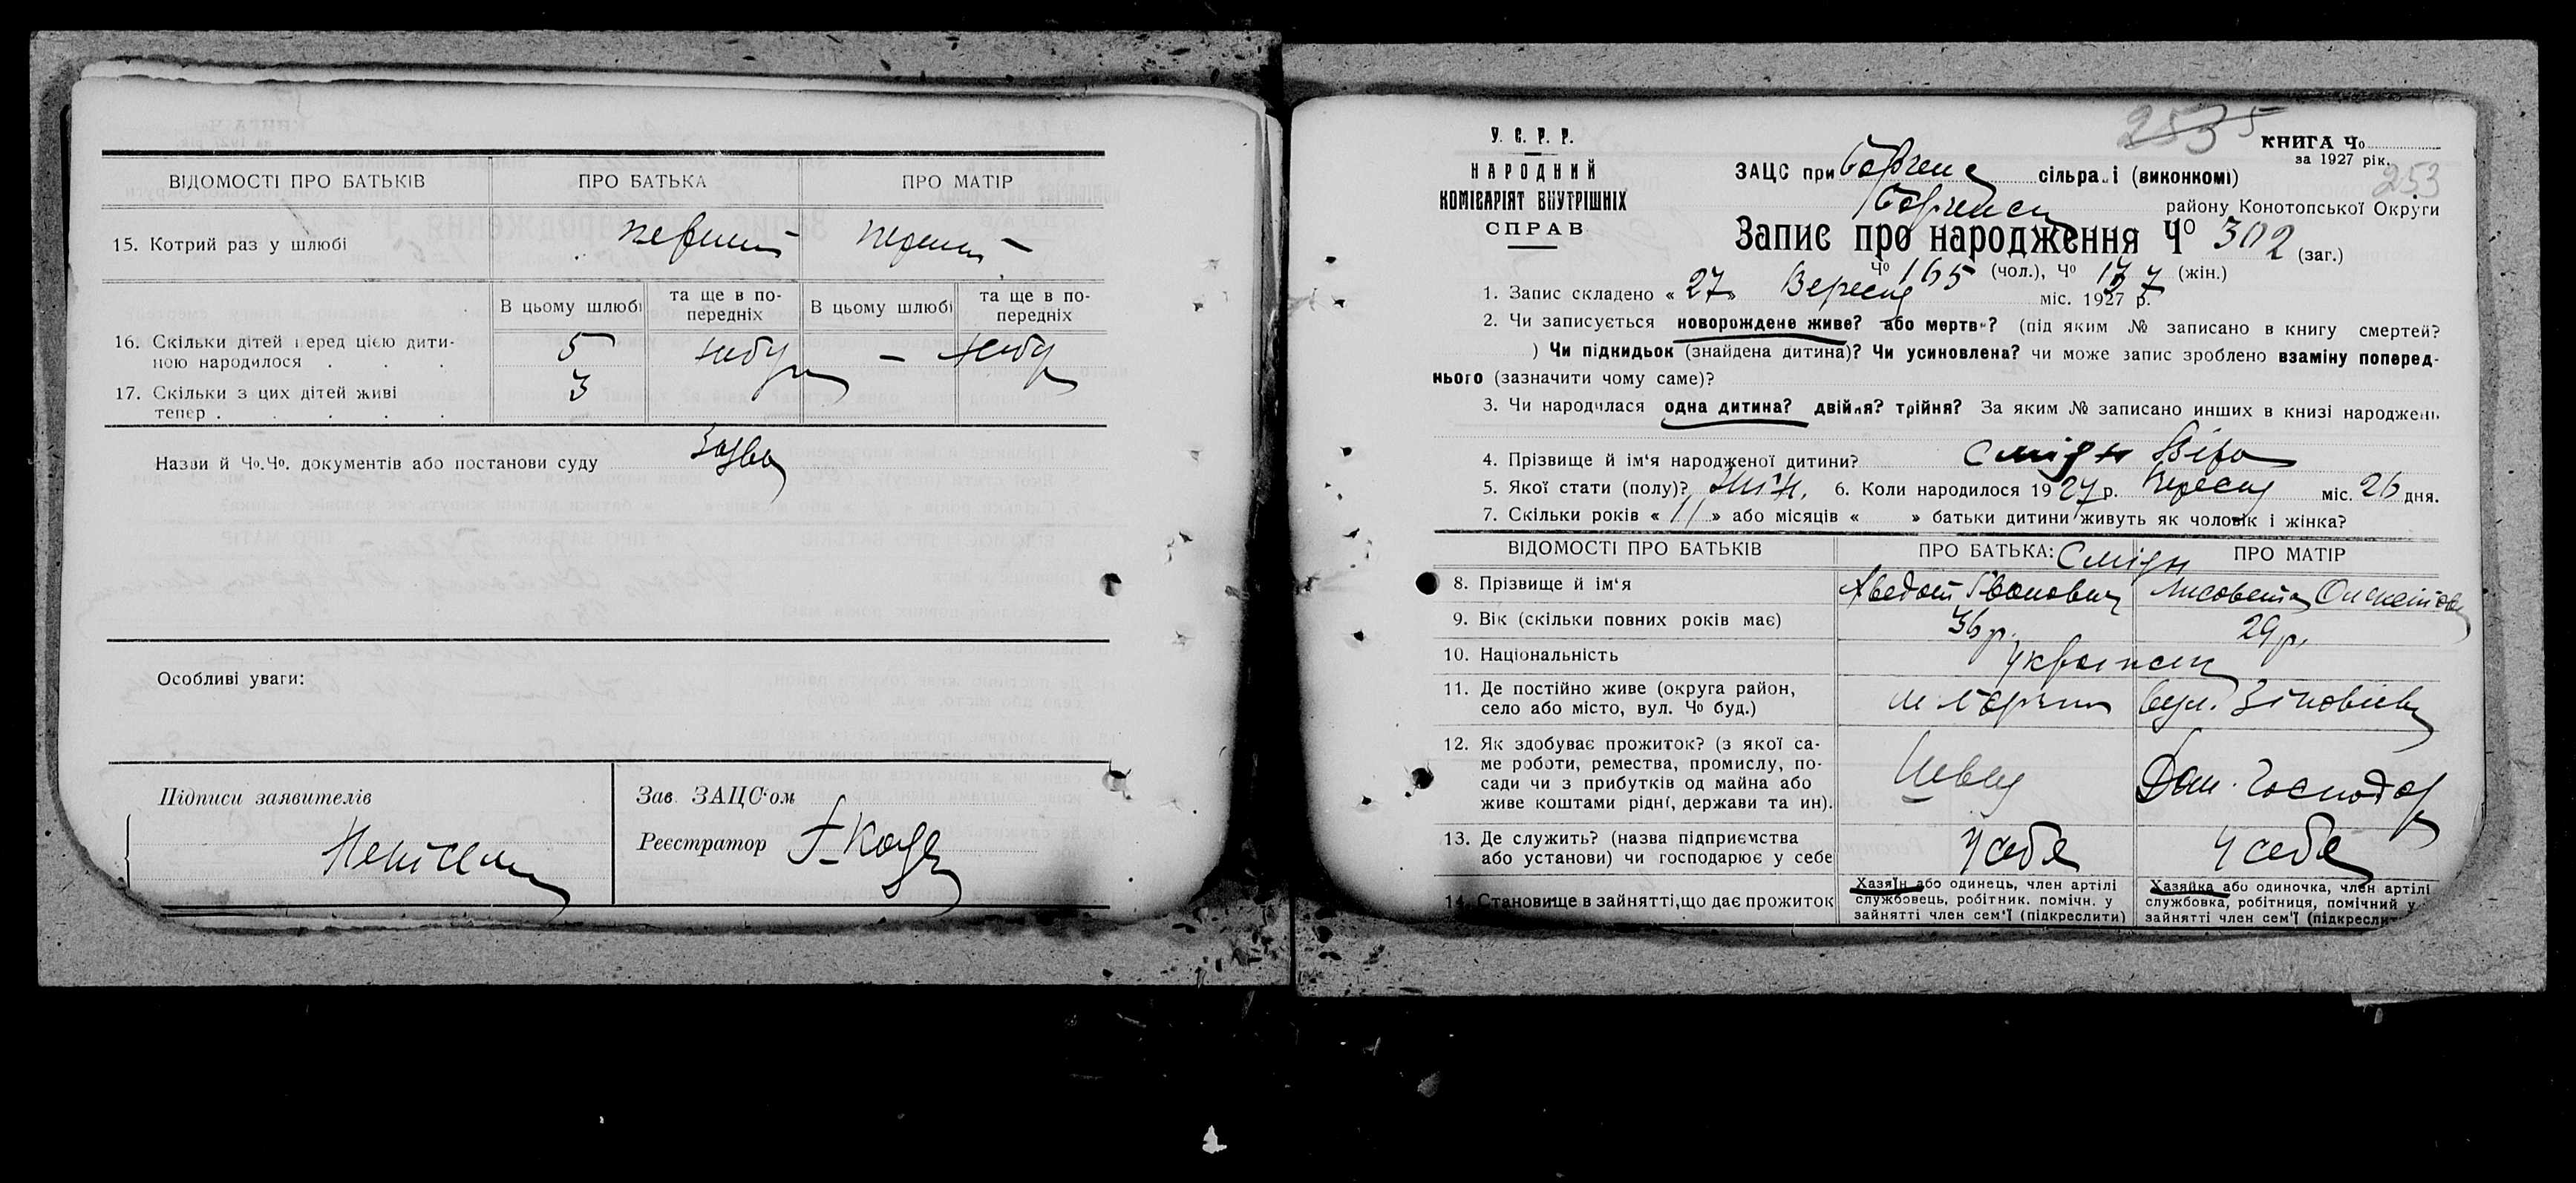 ВІДОМОСТІ ПРО БАТЬКІВ ПРО БАТЬКА ПРО МАТІР
15. Котрий раз у шлюбі перший перший
В цьому шлюбі та ще в по-передніх В цьому шлюбі та ще в по-передніх
16. Скільки дітей перед цією дити-
ною народилося . . . 5 – 
17. Скільки з цих дітей живі
тепер . . . . . 3
Назви й Ч⁰.Ч⁰. документів або постанови суду
Особливі уваги:
Підписи заявителів
Зав. ЗАЦС‘ом
Реєстратор
У. С. Р. Р.
НАРОДНИЙ
КОМІСАРІЯТ ВНУТРІШНІХ
СПРАВ
253
КНИГА Ч⁰
за 1927 рік.
253
ЗАЦС при сільраді (виконкомі)
району Конотопської Округи
Запис про народження Ч⁰ 302 (заг.)
Ч⁰ 165 (чол.), Ч⁰ 137 (жін.)
1. Запис складено « 27 » Вересня міс. 1927 р.
2. Чи записується новорождене живе? або мертве? (під яким № записано в книгу смертей?
) Чи підкидьок (знайдена дитина)? Чи усиновлена? чи може запис зроблено взаміну поперед-
нього (зазначити чому саме)?
3. Чи народилася одна дитина? двійня? трійня? За яким № записано инших в книзі народжень
4. Прізвище й ім‘я народженої дитини? Віра
5. Якої стати (полу)? жін. 6. Коли народилося 1927 р. Вересня міс. 26 дня.
7. Скільки років « 11 » або місяців « » батьки дитини живуть як чоловік і жінка?
ВІДОМОСТІ ПРО БАТЬКІВ ПРО БАТЬКА: ПРО МАТІР
8. Прізвище й ім‘я Іванович
9. Вік (скільки повних років має) 36 р. 29 р.
10. Національність
11. Де постійно живе (округа район,
село або місто, вул. Ч⁰ буд.) вул.
12. Як здобуває прожиток? (з якої са-
ме роботи, ремества, промислу, по-
сади чи з прибутків од майна або
живе коштами рідні, держави та ин).
Швець Дом. Господар
13. Де служить? (назва підприємства
або установи) чи господарює у себе У себе У себе
14. Становище в зайнятті, що дає прожиток
Хазяїн або одинець, член артілі
службовець, робітник. помічн. у
зайнятті член сем‘ї (підкреслити)
Хазяйка або одиночка, член артілі
службовка, робітниця, помічний у
зайнятті член сем‘ї